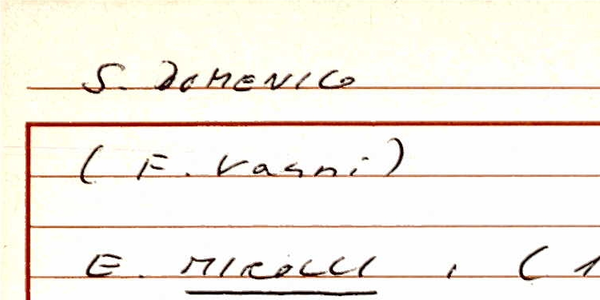 S. DOMENICO
( F. Vanni )
E. MIROLLI , ( 1